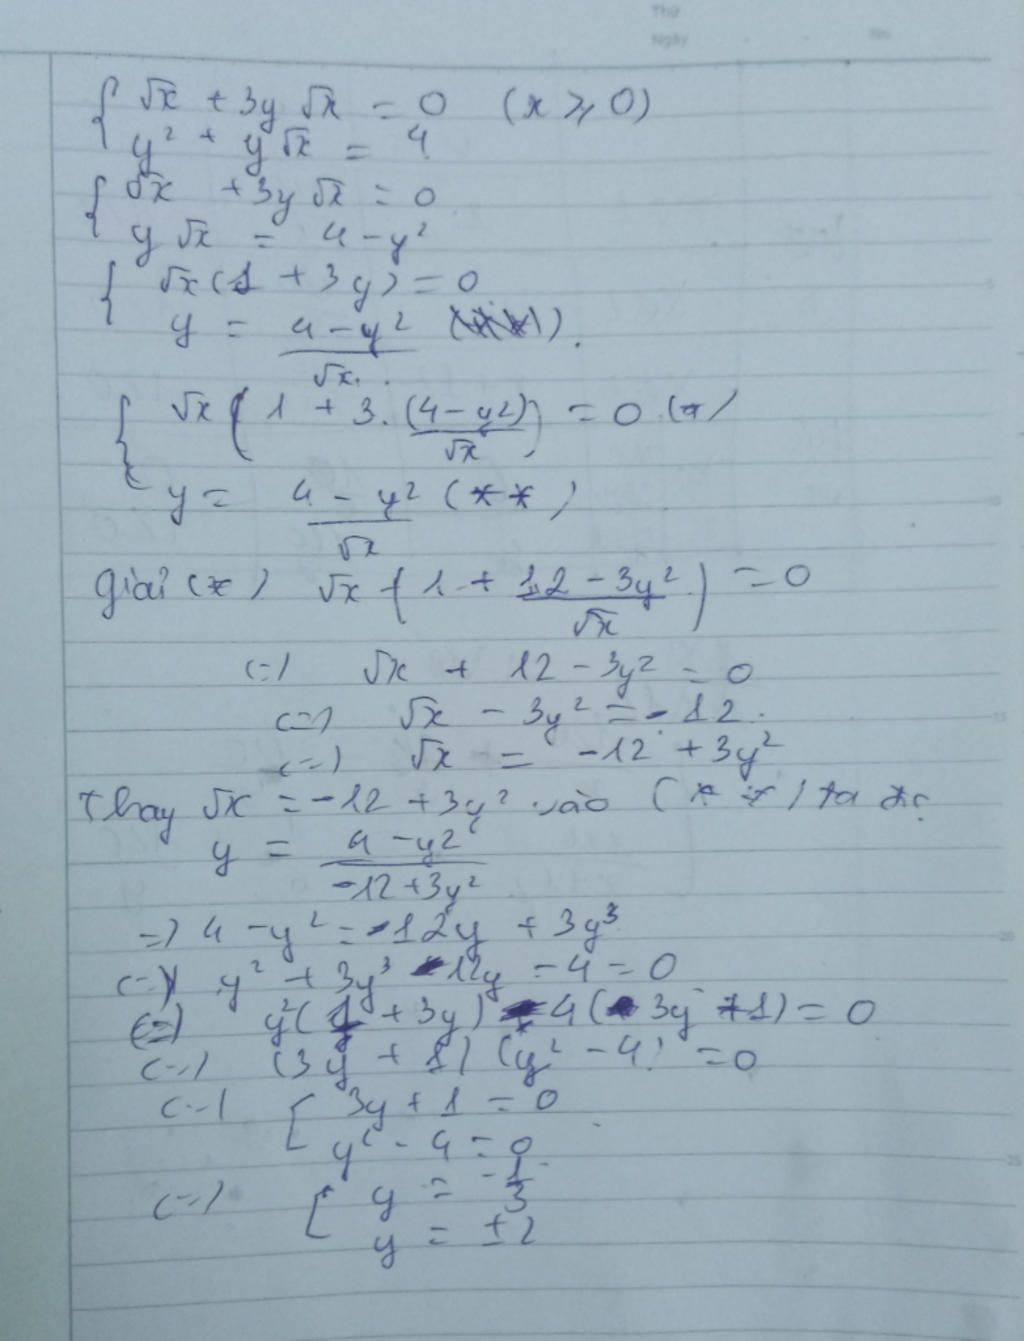 Thứ
Ngày
No
{ √x + 3y √x = 0 (x ⩾ 0)
y² + y √x = 4
{ √x + 3y √x = 0
y √x = 4 - y²
{ √x (1 + 3y) = 0
y = (4 - y²)/√x .
{ √x ( 1 + 3. (4 - y²)/√x ) = 0 (*)
y = (4 - y²)/√x (**)
giải (*) √x ( 1 + (12 - 3y²)/√x ) = 0
<=> √x + 12 - 3y² = 0
<=> √x - 3y² = -12.
<=> √x = -12 + 3y²
thay √x = -12 + 3y² vào (**) ta đc
y = (4 - y²)/(-12 + 3y²)
=> 4 - y² = -12y + 3y³
<=> y² + 3y³ - 12y - 4 = 0
<=> y² (1 + 3y) - 4 (3y + 1) = 0
<=> (3y + 1) (y² - 4) = 0
<=> [ 3y + 1 = 0
y² - 4 = 0
<=> [ y = -1/3
y = ±2